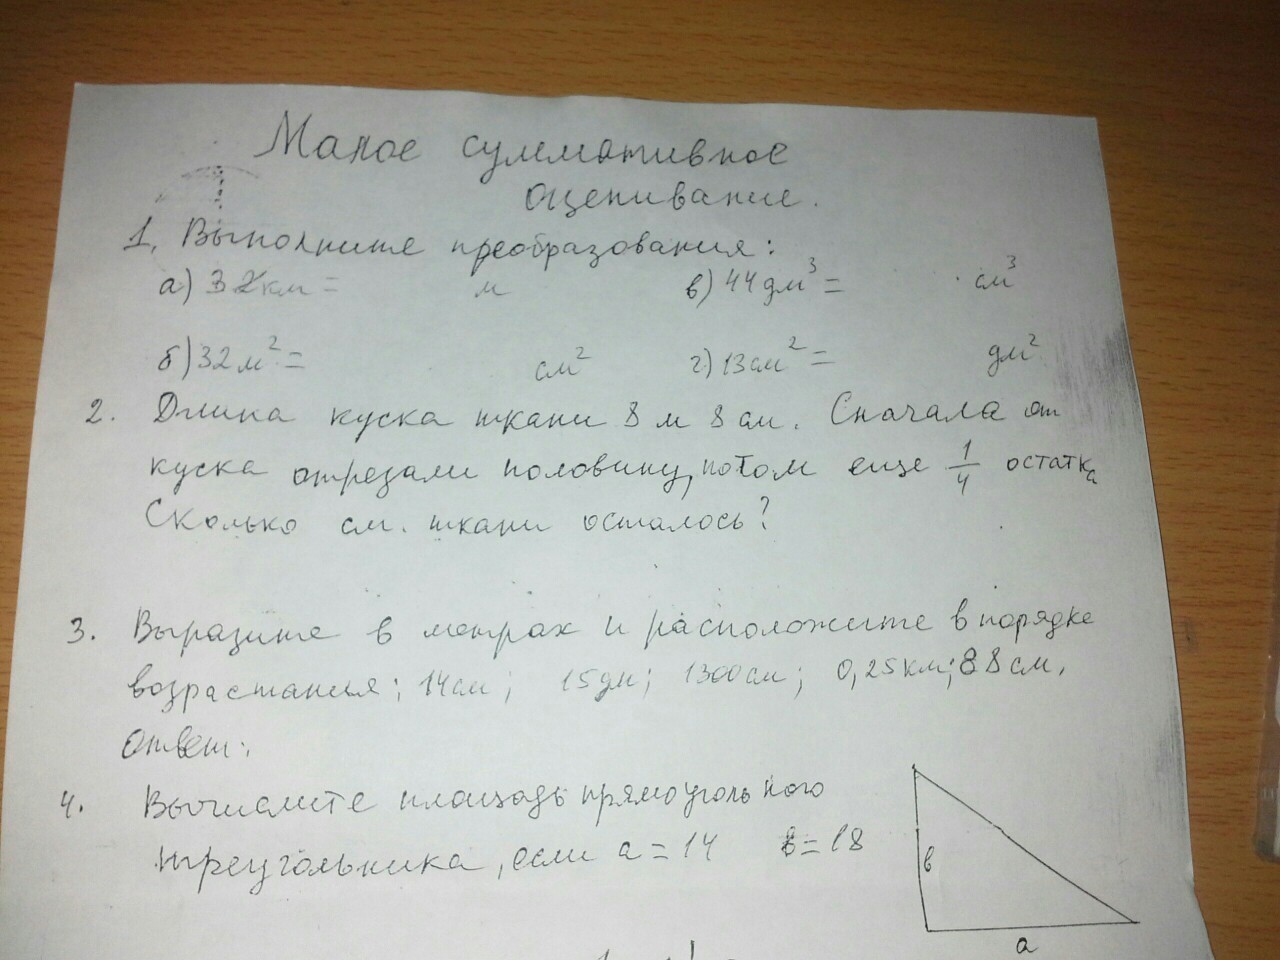 Малое суммативное
оценивание.
1. Выполните преобразования:
а) 32км = м в) 44дм³ = см³
б) 32м² = см² г) 13см² = дм²
2. Длина куска ткани 8 м 8 см. Сначала от
куска отрезали половину, потом еще 1/4 остатка
Сколько см. ткани осталось?
3. Выразите в метрах и расположите в порядке
возрастания: 14см; 15дм; 1300см; 0,25км; 88см.
Ответ:
4. Вычислите площадь прямоугольного
треугольника, если а = 14 в = 18
в
а